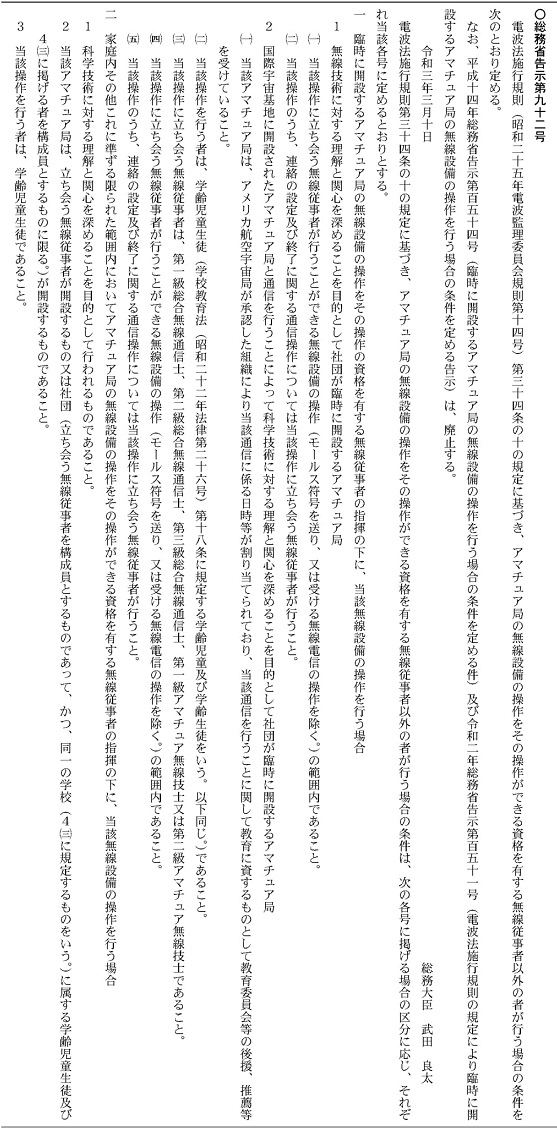 〇総務省告示第九十二号
電波法施行規則（昭和二十五年電波監理委員会規則第十四号）第三十四条の十の規定に基づき、アマチュア局の無線設備の操作をその操作ができる資格を有する無線従事者以外の者が行う場合の条件を
次のとおり定める。
なお、平成十四年総務省告示第百五十四号（臨時に開設するアマチュア局の無線設備の操作を行う場合の条件を定める件）及び令和二年総務省告示第百五十一号（電波法施行規則の規定により臨時に開
設するアマチュア局の無線設備の操作を行う場合の条件を定める告示）は、廃止する。
令和三年三月十日
総務大臣　武田　良太
電波法施行規則第三十四条の十の規定に基づき、アマチュア局の無線設備の操作をその操作ができる資格を有する無線従事者以外の者が行う場合の条件は、次の各号に掲げる場合の区分に応じ、それぞ
れ当該各号に定めるとおりとする。
一　臨時に開設するアマチュア局の無線設備の操作をその操作の資格を有する無線従事者の指揮の下に、当該無線設備の操作を行う場合
１　無線技術に対する理解と関心を深めることを目的として社団が臨時に開設するアマチュア局
㈠　当該操作に立ち会う無線従事者が行うことができる無線設備の操作（モールス符号を送り、又は受ける無線電信の操作を除く。）の範囲内であること。
㈡　当該操作のうち、連絡の設定及び終了に関する通信操作については当該操作に立ち会う無線従事者が行うこと。
２　国際宇宙基地に開設されたアマチュア局と通信を行うことによって科学技術に対する理解と関心を深めることを目的として社団が臨時に開設するアマチュア局
㈠　当該アマチュア局は、アメリカ航空宇宙局が承認した組織により当該通信に係る日時等が割り当てられており、当該通信を行うことに関して教育に資するものとして教育委員会等の後援、推薦等
を受けていること。
㈡　当該操作を行う者は、学齢児童生徒（学校教育法（昭和二十二年法律第二十六号）第十八条に規定する学齢児童及び学齢生徒をいう。以下同じ。）であること。
㈢　当該操作に立ち会う無線従事者は、第一級総合無線通信士、第二級総合無線通信士、第三級総合無線通信士、第一級アマチュア無線技士又は第二級アマチュア無線技士であること。
㈣　当該操作に立ち会う無線従事者が行うことができる無線設備の操作（モールス符号を送り、又は受ける無線電信の操作を除く。）の範囲内であること。
㈤　当該操作のうち、連絡の設定及び終了に関する通信操作については当該操作に立ち会う無線従事者が行うこと。
二　家庭内その他これに準ずる限られた範囲内においてアマチュア局の無線設備の操作をその操作ができる資格を有する無線従事者の指揮の下に、当該無線設備の操作を行う場合
１　科学技術に対する理解と関心を深めることを目的として行われるものであること。
２　当該アマチュア局は、立ち会う無線従事者が開設するもの又は社団（立ち会う無線従事者を構成員とするものであって、かつ、同一の学校（４㈢に規定するものをいう。）に属する学齢児童生徒及び
４㈢に掲げる者を構成員とするものに限る。）が開設するものであること。
３　当該操作を行う者は、学齢児童生徒であること。